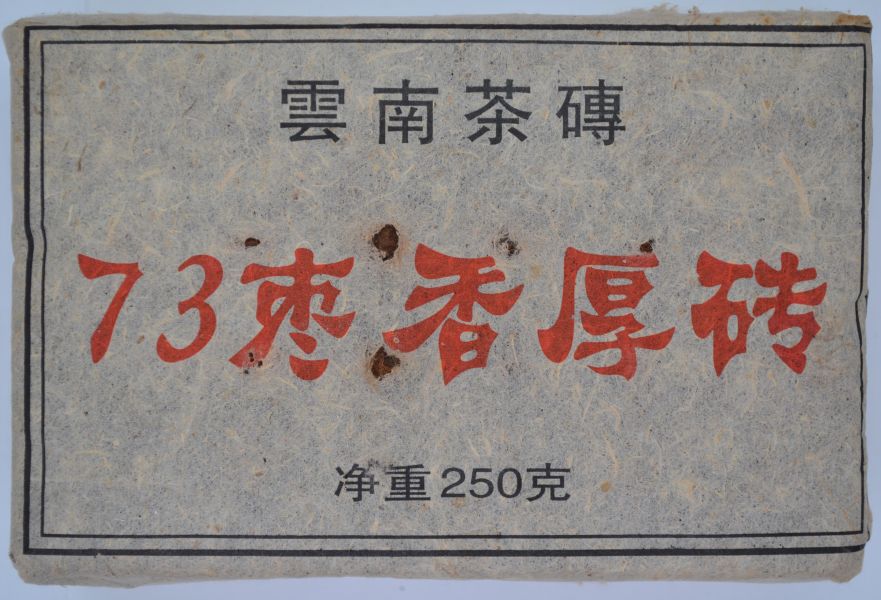 雲南茶磚
73枣香厚砖
净重250克